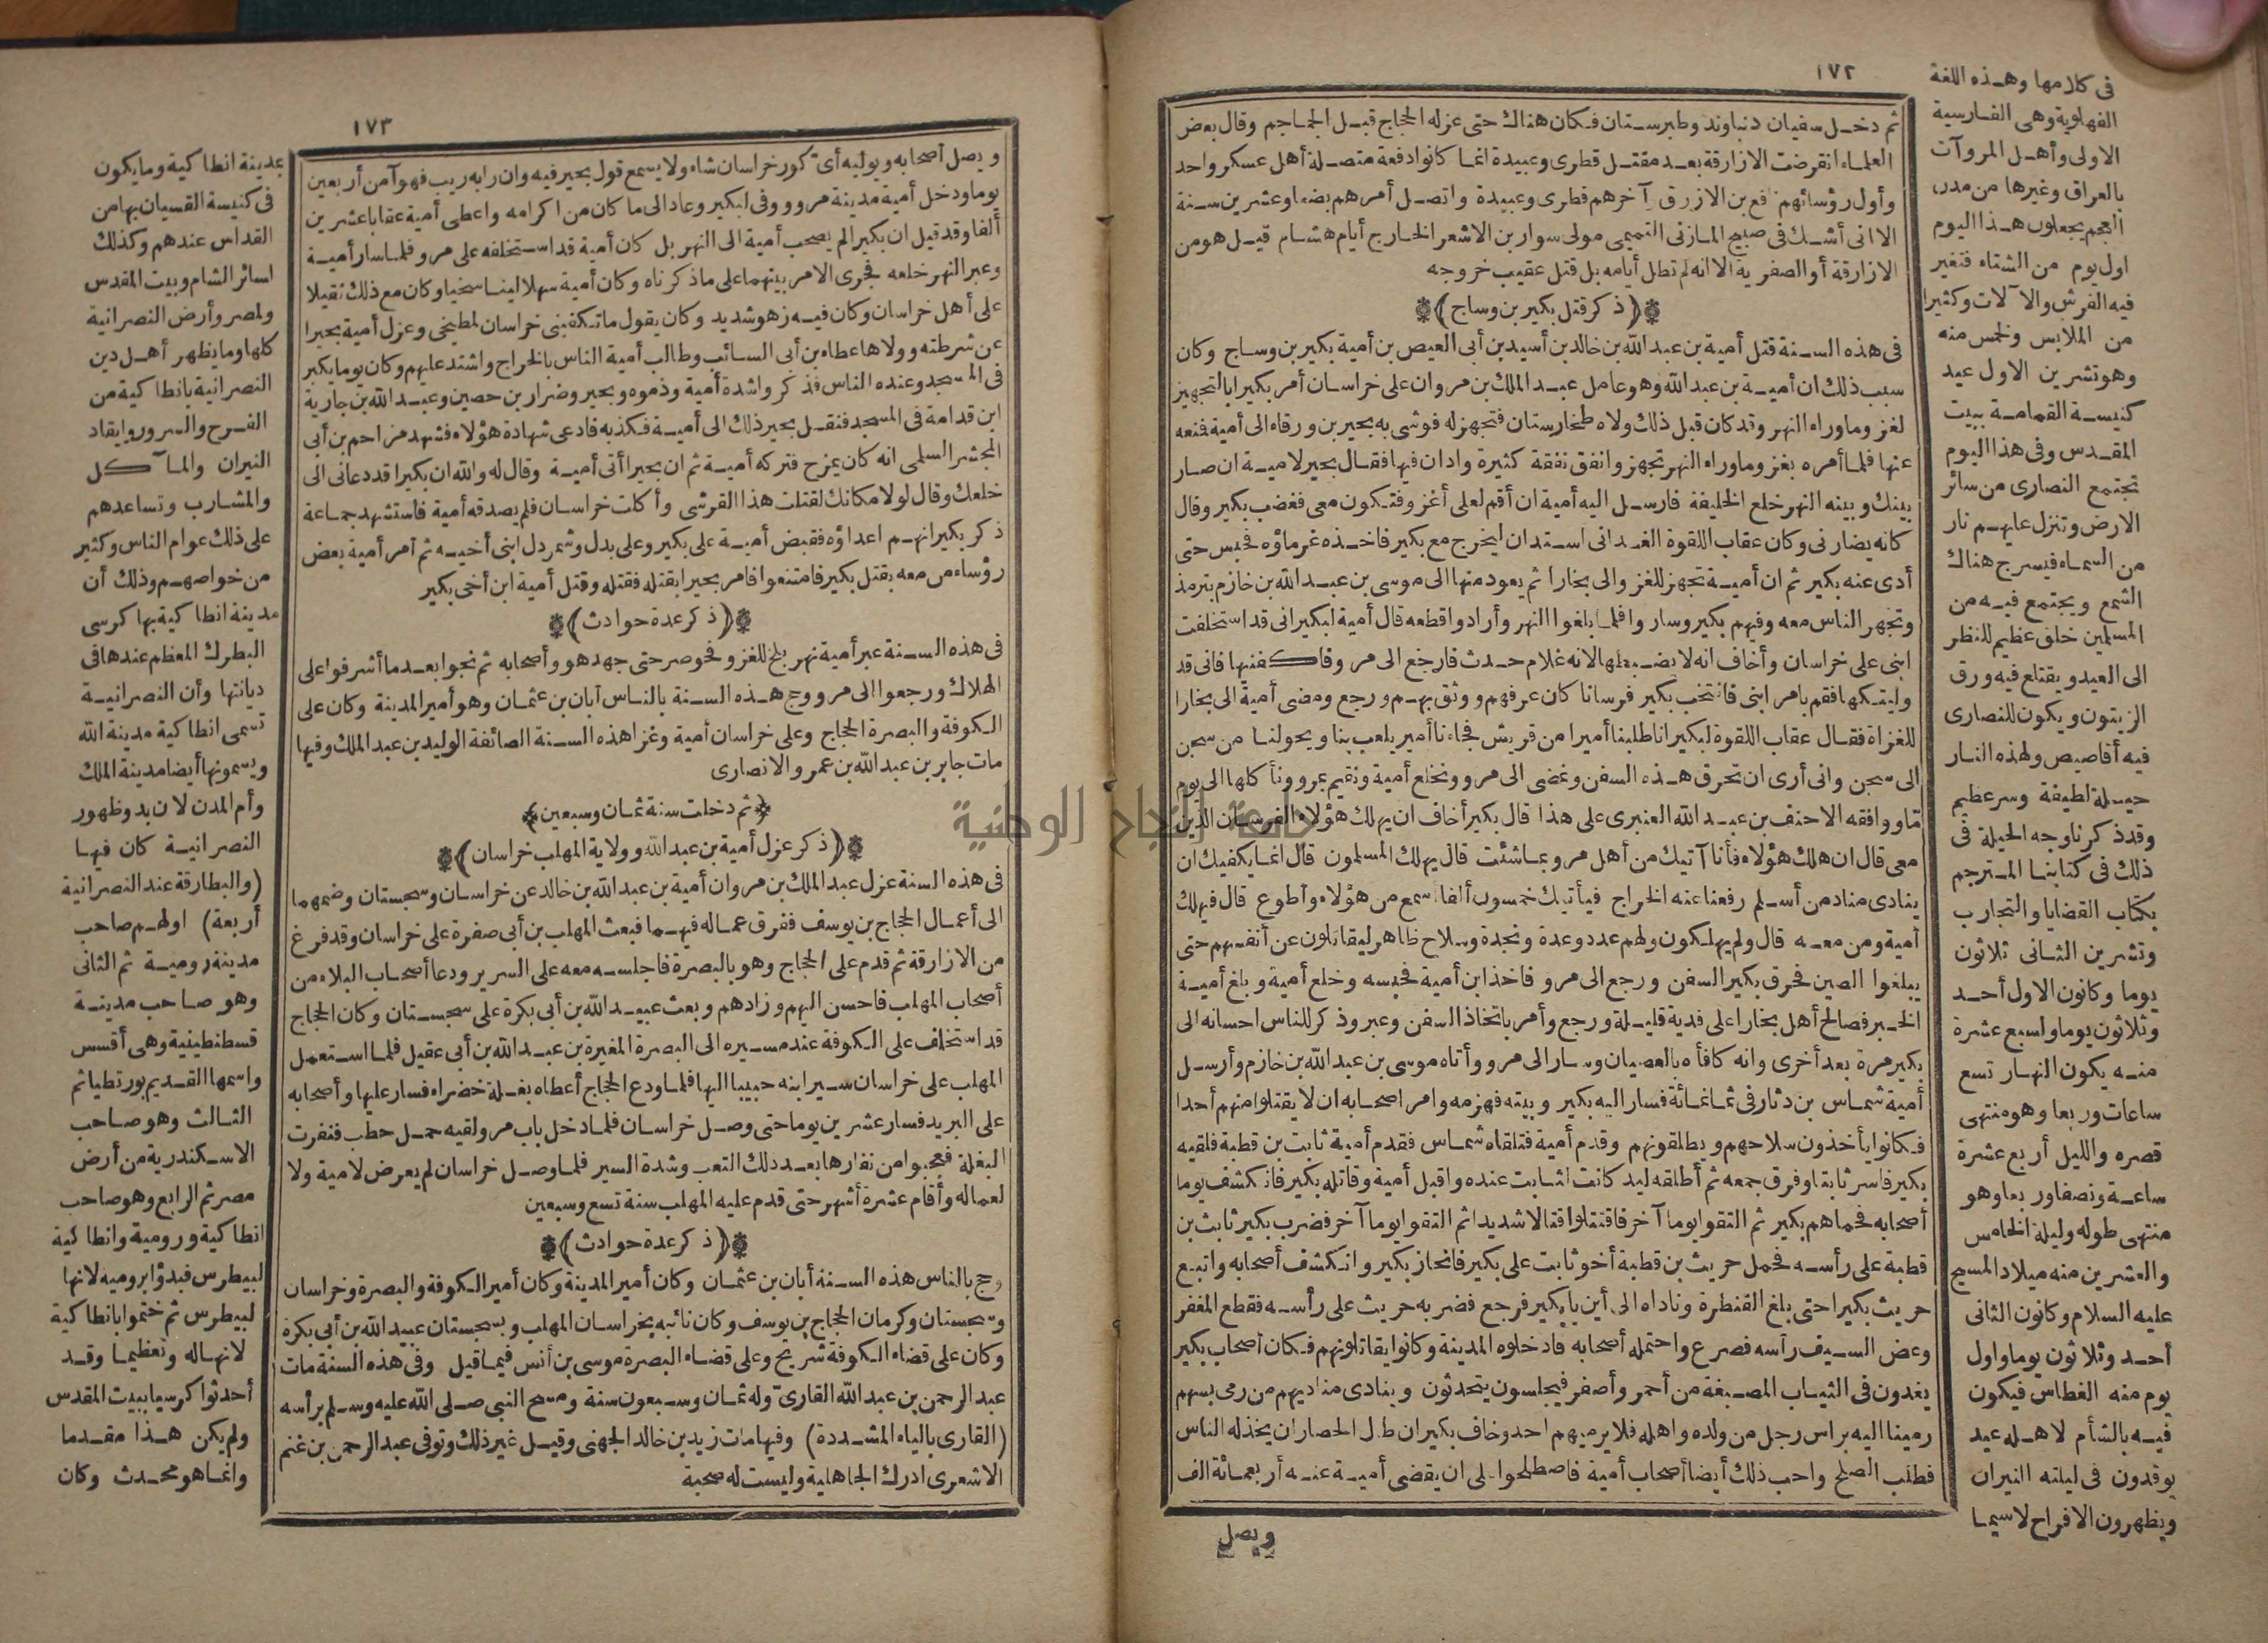 ١٧٢
ثم دخل سفيان دنباوند وطبرستان فكان هناك حتى عزله الحجاج قبل الجماجم وقال بعض
العلماء انقرضت الازارقة بعد مقتل قطرى وعبيدة انما كانوا دفعة متصلة أهل عسكر واحد
وأول رؤسائهم نافع بن الازرق وآخرهم قطرى وعبيدة واتصل أمرهم بضعا وعشرين سنة
الا انى أشك فى صبيح المازنى التميمى مولى سوار بن الاشعر الخارج أيام هشام قيل هو من
الازارقة أو الصفرية الا انه لم تطل أيامه بل قتل عقيب خروجه
﴿ذكر قتل بكير بن وساج﴾
فى هذه السنة قتل أمية بن عبد الله بن خالد بن أسيد بن أبى العيص بن أمية بكير بن وساج وكان
سبب ذلك ان أمية بن عبد الله وهو عامل عبد الملك بن مروان على خراسان أمر بكيرا بالتجهيز
لغزو ما وراء النهر وقد كان قبل ذلك ولاه طخارستان فتجهز له فوشى به بحير بن ورقاء الى أمية فنعه
عنها فلما أمره بغزو ما وراء النهر تجهز وانفق نفقة كثيرة وادان فيها فقال بحير لامية ان صار
بينك وبينه النهر خلع الخليفة فارسل اليه أمية ان أقم لعلى أغزو فتكون معى فغضب بكير وقال
كانه يضارنى وكان عقاب اللقوة الغدانى استدان ليخرج مع بكير فاخذه غرماؤه فحبس حتى
أدى عنه بكير ثم ان أمية تجهز للغزو الى بخارا ثم يعود منها الى موسى بن عبد الله بن خازم بترمذ
وتجهز الناس معه وفيهم بكير وساروا فلما بلغوا النهر وأرادوا قطعه قال أمية لبكير انى قد استخلفت
ابنى على خراسان وأخاف انه لا يضبطها لانه غلام حدث فارجع الى مرو فاكفنيها فانى قد
وليتكها فقم بامر ابنى فانتخب بكير فرسانا كان عرفهم ووثق بهم ورجع ومضى أمية الى بخارا
للغزاة فقال عقاب اللقوة لبكير انا طلبنا أميرا من قريش فجاءنا أمير يلعب بنا ويحولنا من سجن
الى سجن وانى أرى ان تحرق هذه السفن ونمضى الى مرو ونخلع أمية ونقيم بمرو ونأكلها الى يوم
تما ووافقه الاحنف بن عبد الله العنبرى على هذا قال بكير أخاف ان يهلك هؤلاء الفرسان الذين
معى قال ان هلك هؤلاء فأنا آتيك من أهل مرو بما شئت قال يهلك المسلمون قال انما يكفيك ان
ينادى مناد من أسلم رفعنا عنه الخراج فيأتيك خمسون ألفا اسمع من هؤلاء وأطوع قال فيهلك
أمية ومن معه قال ولم يهلكون ولهم عدد وعدة ونجدة وسلاح ظاهر ليقاتلون عن أنفسهم حتى
يبلغوا الصين فحرق بكير السفن ورجع الى مرو فاخذ ابن أمية فحبسه وخلع أمية وبلغ أمية
الخبر فصالح أهل بخارا على فدية قليلة ورجع وأمر باتخاذ السفن وعبر وذكر للناس احسانه الى
بكير مرة بعد أخرى وانه كافأه بالعصيان وسار الى مرو وأتاه موسى بن عبد الله بن خازم وأرسل
أمية شماس بن دثار فى ثمانمائة فسار اليه بكير وبيته فهزمه وامر اصحابه ان لا يقتلوا منهم أحدا
فكانوا يأخذون سلاحهم ويطلقونهم وقدم أمية فتلقاه شماس فقدم أمية ثابت بن قطبة فلقيه
بكير فاسر ثابتا وفرق جمعه ثم أطلقه ليد كانت لثابت عنده واقبل أمية وقاتله بكير فانكشف يوما
أصحابه فحماهم بكير ثم التقوا يوما آخر فاقتتلوا قتالا شديدا ثم التقوا يوما آخر فضرب بكير ثابت بن
قطبة على رأسه فحمل حريث بن قطبة أخو ثابت على بكير فانحاز بكير وانكشف أصحابه واتبع
حريث بكيرا حتى بلغ القنطرة وناداه الى أين يا بكير فرجع فضربه حريث على رأسه فقطع المغفر
وعض السيف رأسه فصرع واحتمله أصحابه فادخلوه المدينة وكانوا يقاتلونهم فكان أصحاب بكير
يغدون فى الثياب المصبغة من أحمر وأصفر فيجلسون يتحدثون وينادى مناديهم من رمى بسهم
رمينا اليه براس رجل من ولده واهله فلا يرميهم احد وخاف بكير ان طال الحصار ان يخذله الناس
فطلب الصلح واحب ذلك أيضا أصحاب أمية فاصطلحوا على ان يقضى أمية عنه أربعمائة الف
ويصل
فى كلامها وهذه اللغة
الفهلوية وهى الفارسية
الاولى وأهل المروآت
بالعراق وغيرها من مدن
العجم يجعلون هذا اليوم
اول يوم من الشتاء فتغير
فيه الفرش والآلات وكثيرا
من الملابس ولخمس منه
وهو تشرين الاول عيد
كنيسة القمامة ببيت
المقدس وفى هذا اليوم
تجتمع النصارى من سائر
الارض وتنزل عليهم نار
من السماء فيسرج هناك
الشمع ويجتمع فيه من
المسلمين خلق عظيم للنظر
الى العيد ويقتلع فيه ورق
الزيتون ويكون للنصارى
فيه أقاصيص ولهذه النار
حيلة لطيفة وسر عظيم
وقد ذكرنا وجه الحيلة فى
ذلك فى كتابنا المترجم
بكتاب القضايا والتجارب
وتشرين الثانى ثلاثون
يوما وكانون الاول أحد
وثلاثون يوما ولسبع عشرة
منه يكون النهار تسع
ساعات وربعا وهو منتهى
قصره والليل أربع عشرة
ساعة ونصفا وربعا وهو
منتهى طوله وليلة الخامس
والعشرين منه ميلاد المسيح
عليه السلام وكانون الثانى
أحد وثلاثون يوما واول
يوم منه الغطاس فيكون
فيه بالشأم لاهله عيد
يوقدون فى ليلته النيران
ويظهرون الافراح لا سيما
١٧٣
ويصل أصحابه ويوليه أى كور خراسان شاء ولا يسمع قول بحير فيه وان رابه ريب فهو آمن أربعين
يوما ودخل أمية مدينة مرو ووفى لبكير وعاد الى ما كان من اكرامه واعطى أمية عقابا عشرين
ألفا وقد قيل ان بكيرا لم يصحب أمية الى النهر بل كان أمية قد استخلفه على مرو فلما سار أمية
وعبر النهر خلعه فجرى الامر بينهما على ما ذكرناه وكان أمية سهلا لينا سخيا وكان مع ذلك ثقيلا
على أهل خراسان وكان فيه زهو شديد وكان يقول ما تكفينى خراسان لمطبخى وعزل أمية بحيرا
عن شرطته وولاها عطاء بن أبى السائب وطالب أمية الناس بالخراج واشتد عليهم وكان يوما بكير
فى المسجد وعنده الناس فذكروا شدة أمية وذموه وبحير وضرار بن حصين وعبد الله بن جارية
ابن قدامة فى المسجد فنقل بحير ذلك الى أمية فكذبه فادعى شهادة هؤلاء فشهد مزاحم بن أبى
المجشر السلمى انه كان يمزح فتركه أمية ثم ان بحيرا أتى أمية وقال له والله ان بكيرا قد دعانى الى
خلعك وقال لولا مكانك لقتلت هذا القرشى وأكلت خراسان فلم يصدقه أمية فاستشهد جماعة
ذكر بكير انهم اعداؤه فقبض أمية على بكير وعلى بدل وشمردل ابنى أخيه ثم أمر أمية بعض
رؤساء من معه بقتل بكير فامتنعوا فامر بحيرا بقتله فقتله وقتل أمية ابن أخى بكير
﴿ذكر عدة حوادث﴾
فى هذه السنة عبر أمية نهر بلخ للغزو فحوصر حتى جهد هو وأصحابه ثم نجوا بعد ما أشرفوا على
الهلاك ورجعوا الى مرو وحج هذه السنة بالناس أبان بن عثمان وهو أمير المدينة وكان على
الكوفة والبصرة الحجاج وعلى خراسان أمية وغزا هذه السنة الصائفة الوليد بن عبد الملك وفيها
مات جابر بن عبد الله بن عمرو الانصارى
﴿ثم دخلت سنة ثمان وسبعين﴾
﴿ذكر عزل أمية بن عبد الله وولاية المهلب خراسان﴾
فى هذه السنة عزل عبد الملك بن مروان أمية بن عبد الله بن خالد عن خراسان وسجستان وضمهما
الى أعمال الحجاج بن يوسف ففرق عماله فيهما فبعث المهلب بن أبى صفرة على خراسان وقد فرغ
من الازارقة ثم قدم على الحجاج وهو بالبصرة فاجلسه معه على السرير ودعا أصحاب البلاء من
أصحاب المهلب فاحسن اليهم وزادهم وبعث عبيد الله بن أبى بكرة على سجستان وكان الحجاج
قد استخلف على الكوفة عند مسيره الى البصرة المغيرة بن عبد الله بن أبى عقيل فلما استعمل
المهلب على خراسان سير ابنه حبيبا اليها فلما ودع الحجاج أعطاه بغلة خضراء فسار عليها وأصحابه
على البريد فسار عشرين يوما حتى وصل خراسان فلما دخل باب مرو لقيه حمل حطب فنفرت
البغلة فعجبوا من نفارها بعد ذلك التعب وشدة السير فلما وصل خراسان لم يعرض لامية ولا
لعماله وأقام عشرة أشهر حتى قدم عليه المهلب سنة تسع وسبعين
﴿ذكر عدة حوادث﴾
وحج بالناس هذه السنة أبان بن عثمان وكان أمير المدينة وكان أمير الكوفة والبصرة وخراسان
وسجستان وكرمان الحجاج بن يوسف وكان نائبه بخراسان المهلب وبسجستان عبيد الله بن أبى بكرة
وكان على قضاء الكوفة شريح وعلى قضاء البصرة موسى بن أنس فيما قيل وفى هذه السنة مات
عبد الرحمن بن عبد الله القارىّ وله ثمان وسبعون سنة ومسح النبى صلى الله عليه وسلم برأسه
(القارى بالياء المشددة) وفيها مات زيد بن خالد الجهنى وقيل غير ذلك وتوفى عبد الرحمن بن غنم
الاشعرى ادرك الجاهلية وليست له صحبة
بمدينة انطاكية وما يكون
فى كنيسة القسيان بها من
القداس عندهم وكذلك
لسائر الشام وبيت المقدس
ولمصر وأرض النصرانية
كلها وما يظهر أهل دين
النصرانية بانطاكية من
الفرح والسرور وايقاد
النيران والمآكل
والمشارب وتساعدهم
على ذلك عوام الناس وكثير
من خواصهم وذلك أن
مدينة انطاكية بها كرسى
البطرك المعظم عندها فى
ديانتها وأن النصرانية
تسمى انطاكية مدينة الله
ويسمونها أيضا مدينة الملك
وأم المدن لان بدو ظهور
النصرانية كان فيها
(والبطارقة عند النصرانية
أربعة) اولهم صاحب
مدينة رومية ثم الثانى
وهو صاحب مدينة
قسطنطينية وهى أفسس
واسمها القديم بورنطيا ثم
الثالث وهو صاحب
الاسكندرية من أرض
مصر ثم الرابع وهو صاحب
انطاكية ورومية وانطاكية
لبيطرس فبدؤا برومية لانها
لبيطرس ثم ختموا بانطاكية
لانها له وتعظيما وقد
أحدثوا كرسيا ببيت المقدس
ولم يكن هذا مقدما
وانما هو محدث وكان
جامعة النجاح الوطنية